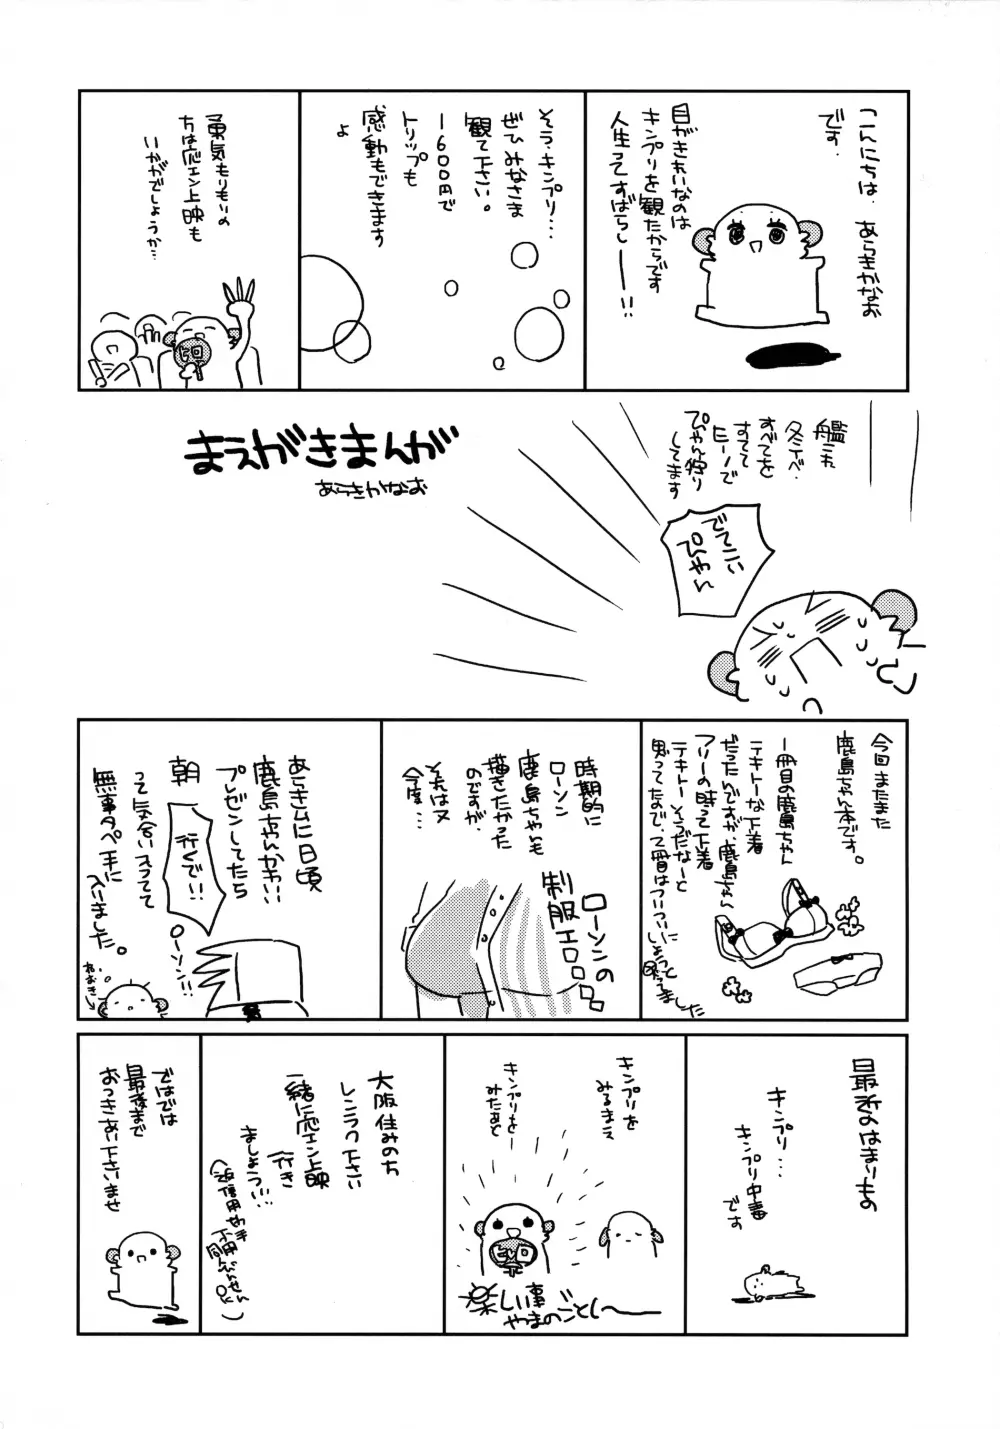 こんにちは。あらきかなお
です。
目がきれいなのは
キンプリを観たからです
人生ってすばらしー!!
そう、キンプリ…
ぜひみなさま
観て下さい。
1600円で
トリップも
感動もできます
よ
勇気もりもりの
方は応エン上映も
いかがでしょうか…
ヒロ
まえがきまんが
あらきかなお
艦これ
冬イベ、
すべてを
すてて
ヒーノで
ぴゃん狩り
してます
でてこい
ぴゃん
今回またまた
鹿島ちゃん本です。
一冊目の鹿島ちゃん
テキトーな下着
だったんですが、鹿島ちゃん
フリーの時って下着
テキトーそうだなーと
思ってたので、2冊目はついついに
しょっと
ってました
時期的に
ローソン
鹿島ちゃんも
描きたかった
のですが、
それは又
今度…
ローソンの
制服エロロロロ
あらきムに日頃
鹿島ちゃんかわいい
プレゼンしてたら
朝
行くで!!
ローソン!!
って気合いスゴくて
無事タペ手に
入りました。
ねおき
最近のはまりもの
キンプリ…
キンプリ中毒
です
キンプリを
みるまえ
キンプリを
みたあと
ヒロ
楽しい事
やまのごとしー
大阪住みのち
レンラク下さい
一緒に応エン上映
行き
ましょう…
(返信用切手
不用
同人びんせん
OK)
ではでは
最後まで
おつきあい下さいませ